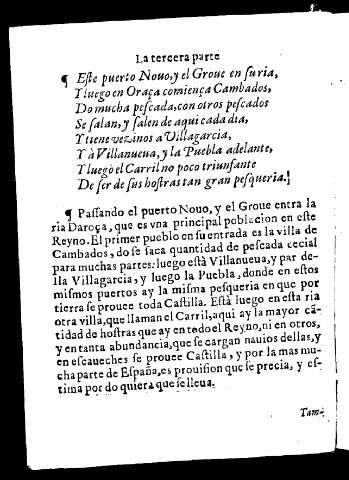 La tercera parte
¶ Este puerto Nouo, y el Groue en su ria,
Y luego en Oraça comiença Cambados,
Do mucha pescada, con otros pescados
Se salan, y salen de aqui cada dia,
Y tiene vezinos a Villagarcia,
Y à Villanueua, y la Puebla adelante,
Y luego el Carril no poco triunfante
De ser de sus hostras tan gran pesqueria.
¶ Passando el puerto Nouo, y el Groue entra la
ria Daroça, que es vna principal poblacion en este
Reyno. El primer pueblo en su entrada es la villa de
Cambados, do se saca quantidad de pescada cecial
para muchas partes: luego està Villanueua, y par de-
lla Villagarcia, y luego la Puebla, donde en estos
mismos puertos ay la misma pesqueria en que por
tierra se prouee toda Castilla. Està luego en esta ria
otra villa, que llaman el Carril, aqui ay la mayor cã-
tidad de hostras que ay en todo el Reyno, ni en otros,
y en tanta abundancia, que se cargan nauios dellas, y
en escaueches se prouee Castilla, y por la mas mu-
cha parte de España, es prouision que se precia, y es-
tima por do quiera que se lleua.
Tam-